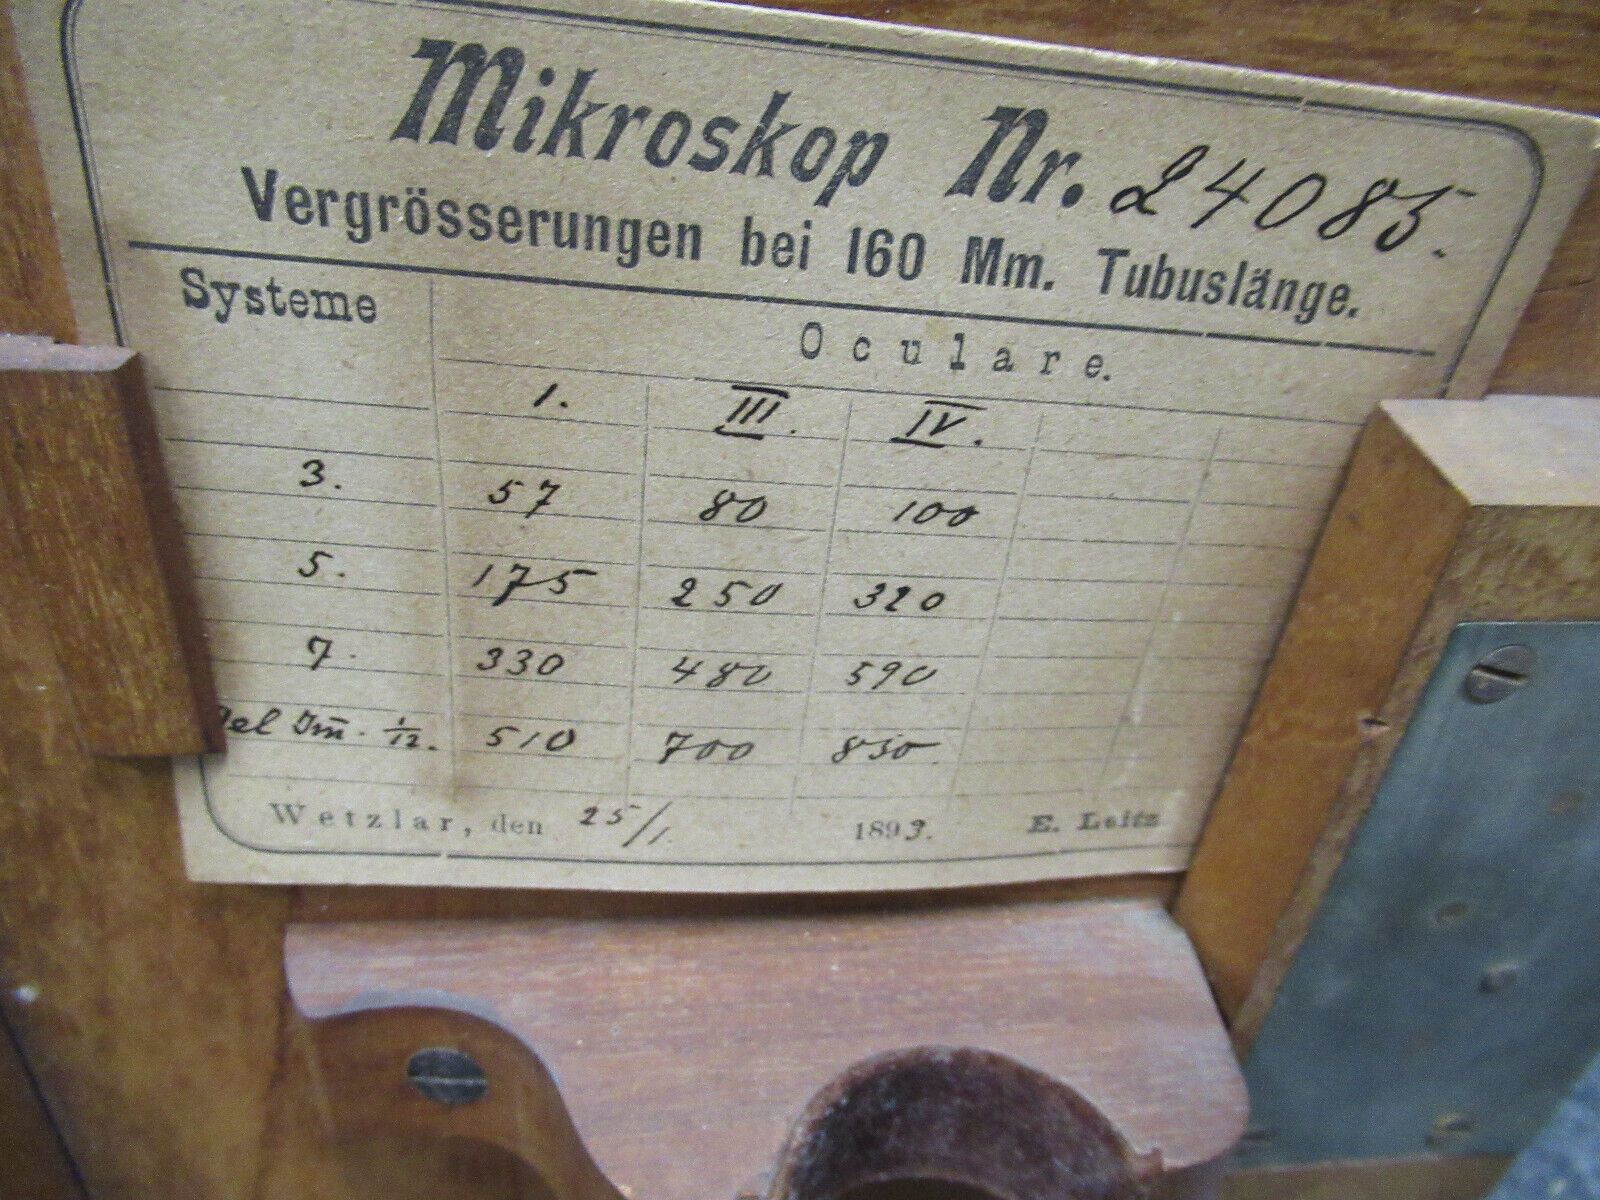 Mikroskop Nr. 24085.
Vergrösserungen bei 160 Mm. Tubuslänge.
Systeme
Oculare.
1. III. IV.
3. 57 80 100
5. 175 250 320
7. 330 480 590
Oel Im. 1/12. 510 700 850
Wetzlar, den 25/1. 1893. E. Leitz